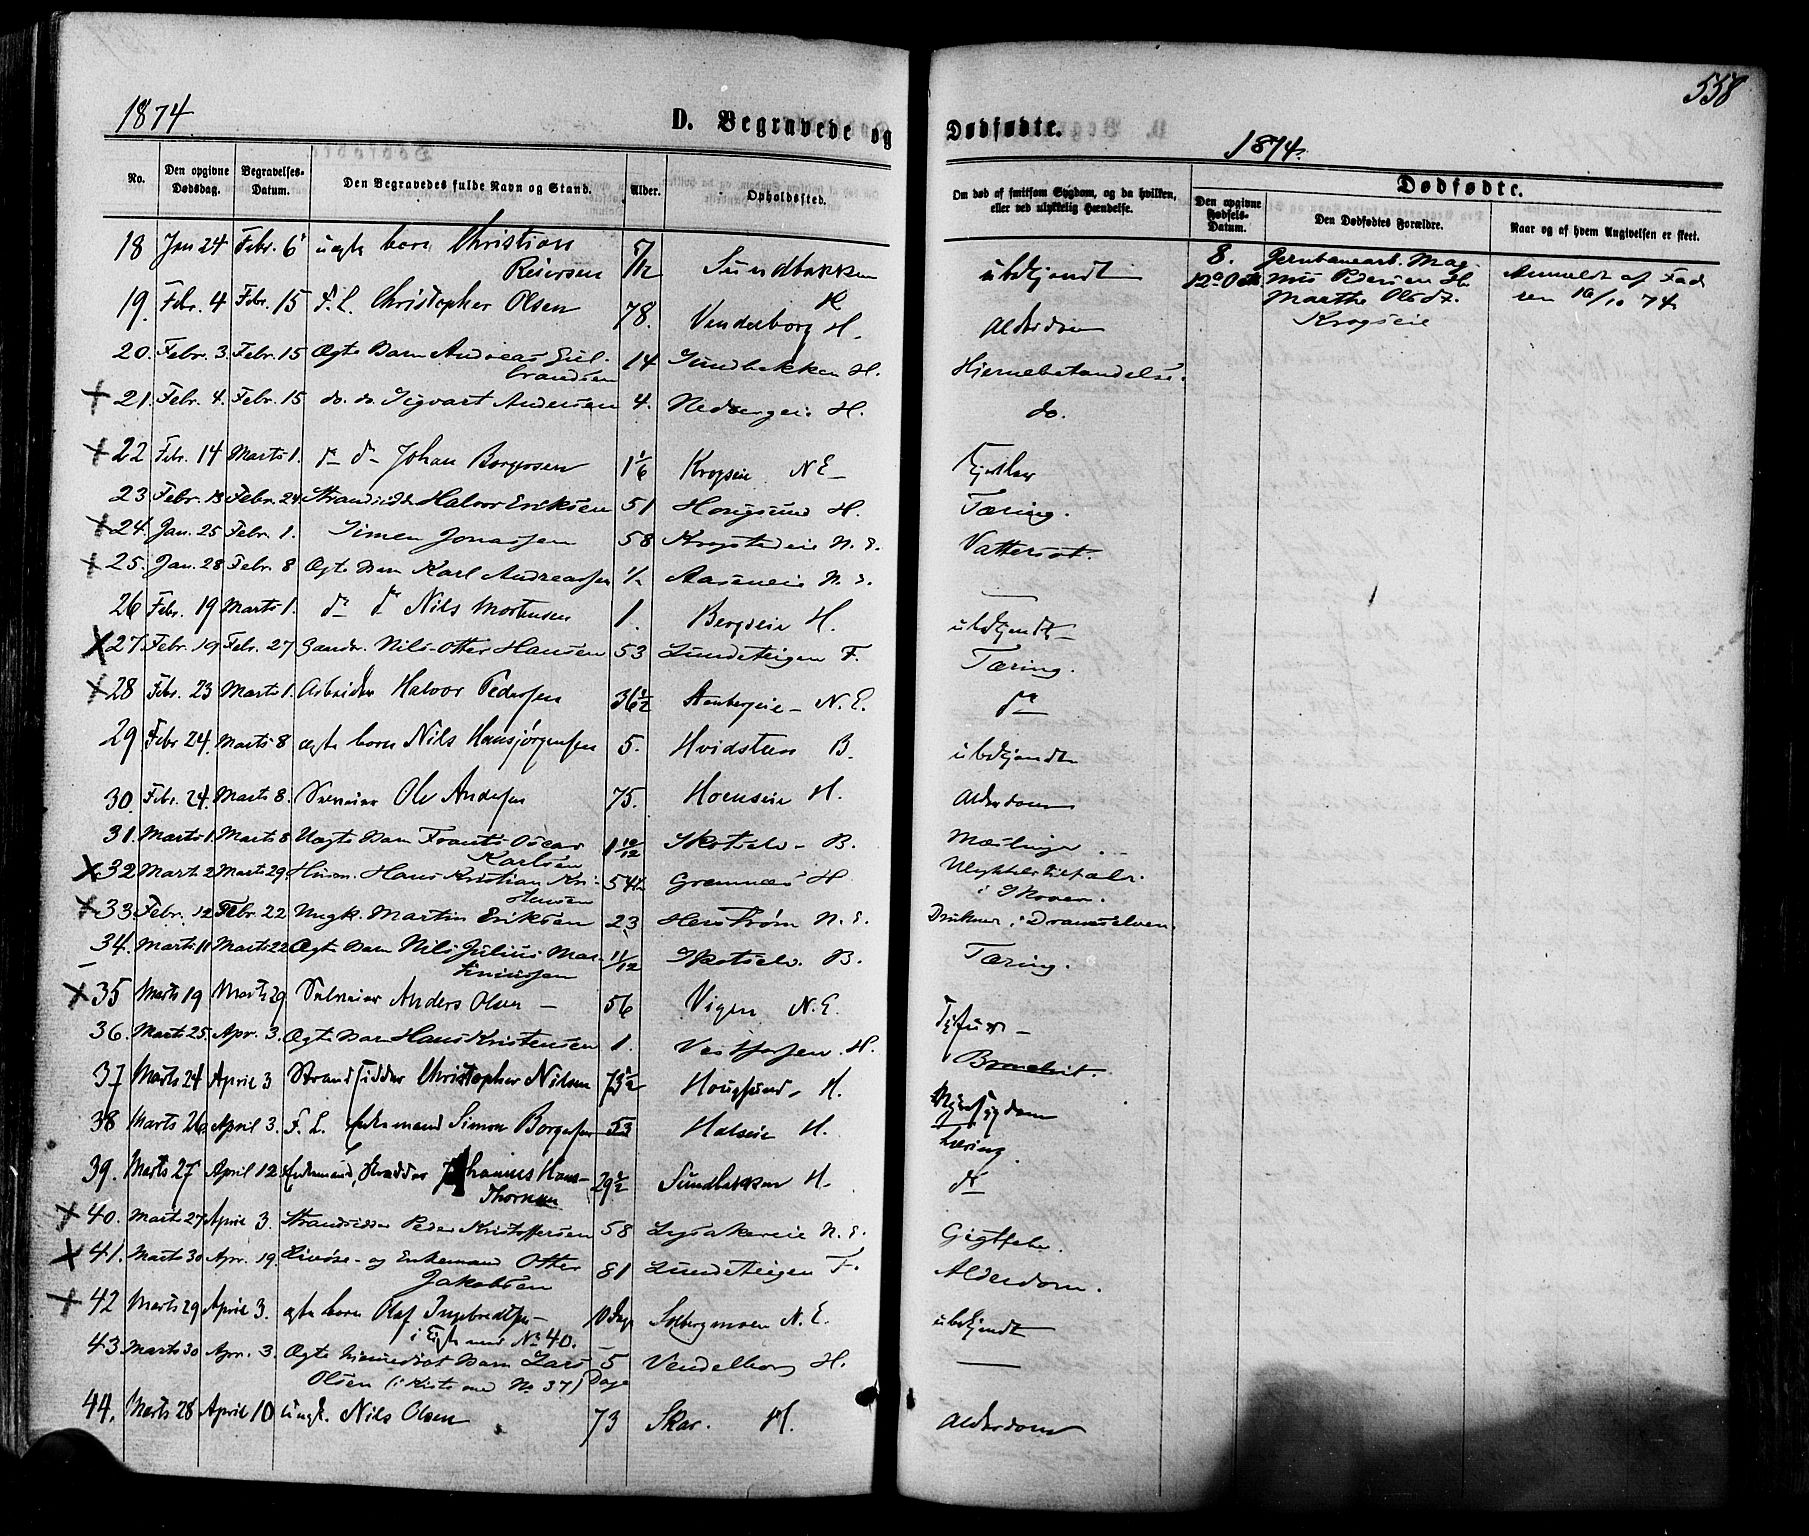 558
1874.
D. Begravede og Dødfødte.
1874.
No.
Den opgivne Dødsdag.
Begravelses-Datum.
Den Begravedes fulde Navn og Stand.
Alder.
Opholdssted.
Om død af smitsom Sygdom, og da hvilken, eller ved ulykkelig Hændelse.
Dødfødte.
Den opgivne Fødsels-Datum.
Den Dødfødtes Forældre.
Naar og af hvem Angivelsen er skeet.
18 Jan 24 Febr. 6 uægte barn Christian
Reiersen Sundbakken H ubekjendt
19. Febr. 4 Febr. 15 F. L. Christopher Olsen 78. Vendelborg H. Alderdom
20. Febr. 3. Febr. 15 Ægte Barn Andreas Gul-
brandsen 14 Sundbakken H. Hjernebetændelse.
21. Febr. 4. Febr. 15 do. do. Sigvart Andersen 4. Nedbergeie H. do.
22 Febr. 14 Marts 1. d. d. Johan Borgersen 1 1/6 Krogseie N.E.
23 Febr. 13 Febr. 24 Strandsidder Halvor Eriksen 51 Hougsund H. Tæring.
24. Jan. 25 Febr. 1. Simen Jonassen 58 Krogstadeie N.E. Vattersot.
25. Jan. 28 Febr. 8 Ægte Barn Karl Andreassen 1/2 Aaseneie N.E. —
26 Febr. 19 Marts 1. do do Nils Mortensen 1. Bergseie H. ubekjendt
27. Febr. 19 Febr. 27 Gaardbr. Nils Otter Hansen 53 Lundeteigen F. Tæring.
28 Febr. 23 Marts 1. Arbeider Halvor Pedersen 36 1/2 Stenbergeie N.E. do
29 Febr 24. Marts 8 ægte barn Nils Hansjørgensen 5. Hvidsteen B. ubekjendt
30. Febr. 24. Marts 8. Selveier Ole Andersen 75. Hornseie H. Alderdom
31. Marts 1. Marts 8 Uægte Barn Frants Oscar
Karlsen 1 10/12 Skotselv B. Mæslinger
32 Marts 2 Marts 29. Husm. Hans Kristian Kri-
stensen 54 1/2 Gramnæs H Ulykkestilfælde
i Skoven.
33 Febr. 12 Febr. 22 Ungk. Martin Eriksen 23 Herstrøm N.E. Druknet i Dramselven.
34. Marts 11 Marts 22 Ægt. Barn Nils Julius Mar-
tiniussen 11/12 Skotselv. B. Tæring.
35 Marts 19 Marts 29 Selveier Anders Olsen — 56 Vigen N.E. Tyfus —
36. Marts 25. Apr. 3. Ægt. Barn Hans Kristensen 1. Vestfossen H.
37 Marts 24 April 3 Strandsidder Christopher Nilsen 73 1/2 Hougsund, H.
38 Marts 26. April 3. F. L. Enkemand Simon Borgersen 53 Halseie H. Tæring.
39. Marts 27 April 12 Enkemand, Strandsidder Johannes Hans-
Thornæs 29 1/2 Sundbakken H. do
40. Marts 27 April 3. Strandsidder Peder Kristoffersen 58 Lysakereie N.E. Gigtfeber.
41. Marts 30 Apr. 19. Livøre- og Enkemand Otter
Jakobsen 81 Lundeteigen F. Alderdom.
42 Marts 29 April 3. ægte barn Olaf Ingebretsen 10 Dage Solbergmoen N.E. ubekjendt
i Kiste med No 40.
43 Marts 30 Apr. 3. Ægte hjemmedøbt Barn Lars
Olsen (i Kiste med No 37) 5 Dage Vendelborg H. —
44. Marts 28 April 10 Ungk. Nils Olsen 73 Skar. H. Alderdom
8.
12 Oct Jernbanearb. Mag-
nus Pedersen H.
Marthe Olsdt.
Krogseie
Anmeldt af Fade-
ren 16/10 74